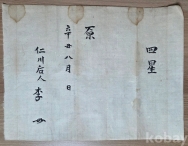 四星
原
六十廿八月 日
仁川后人 李 廿
kobay